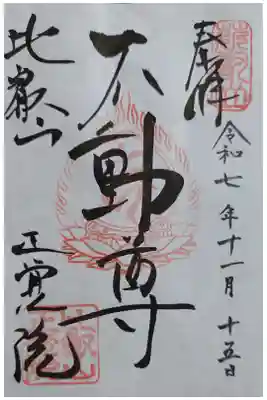 奉拝
令和七年十一月十五日
不動尊
比叡山
正覚院